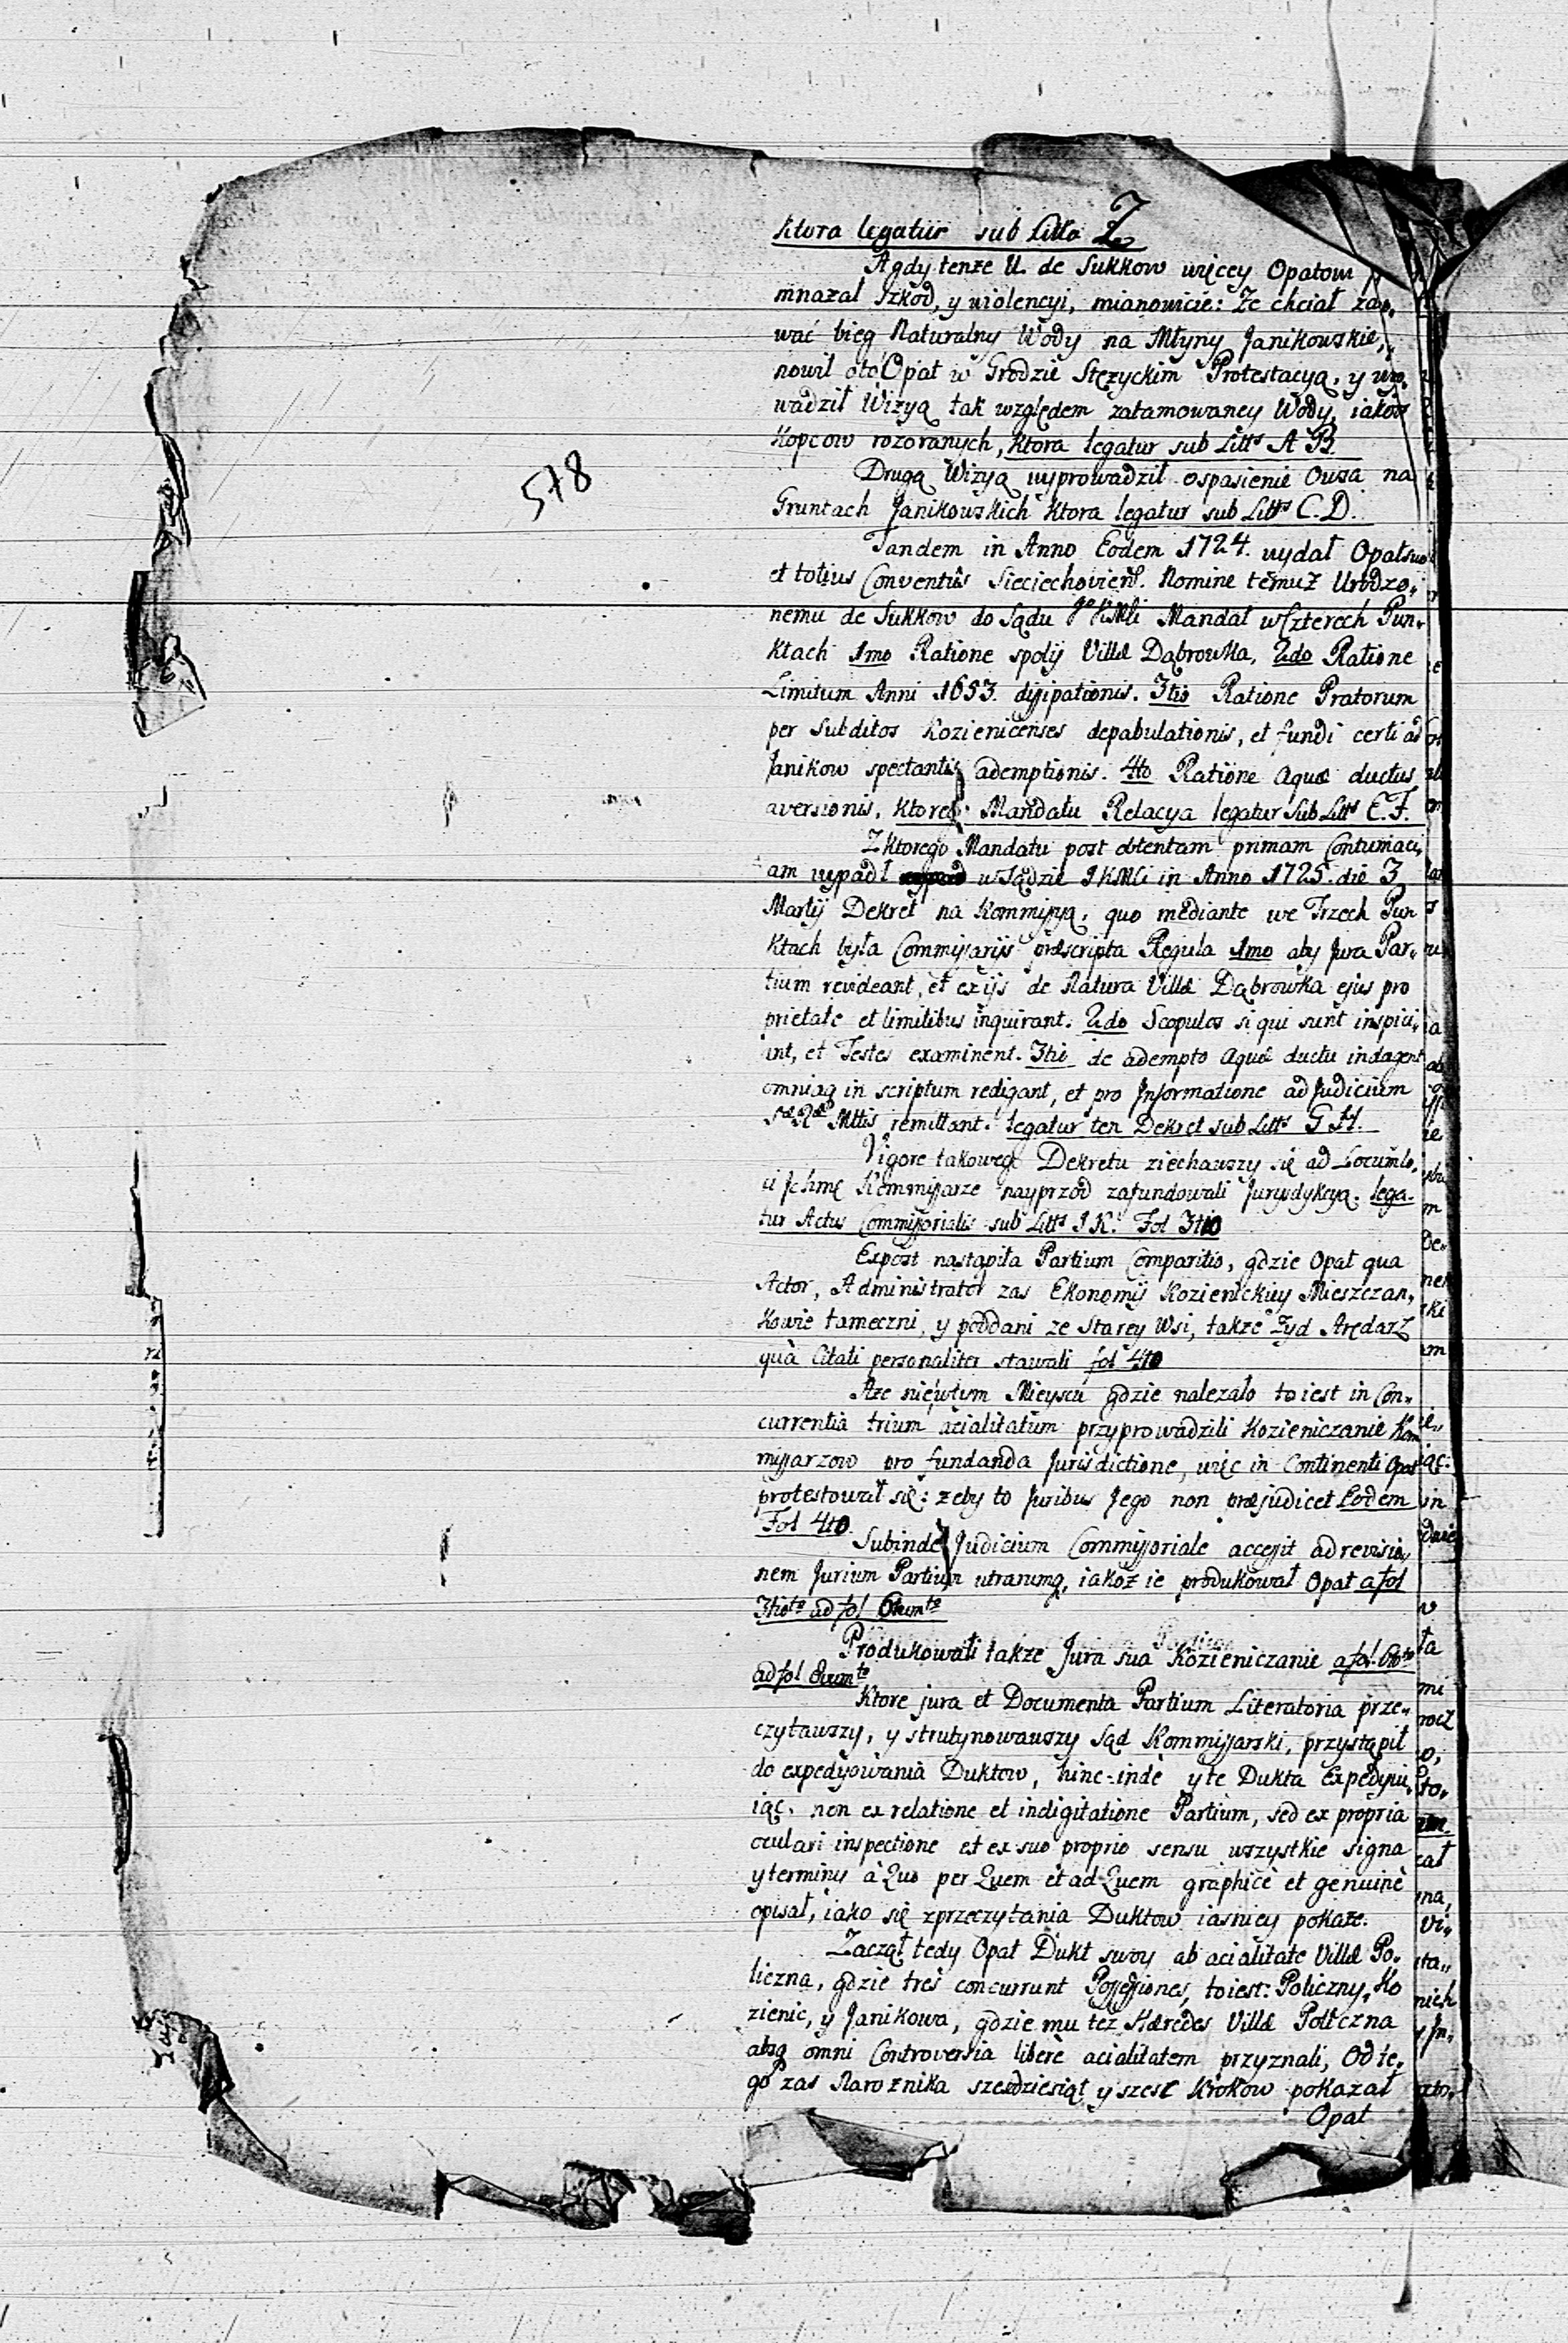 ktora legatur sub Littá Z
A gdy tenze U. de Sukkow więcey Opatowi
mnażał Szkod, y violencyi, mianowicie: Ze chciał
wać bieg Naturalny Wody na Młyny Janikowskie,
nowił oto Opat w Grodzie Stęzyckim Protestacyą, y wy,,
wadził Wizyą tak względem zatamowaney Wody, iako
Kopcow rozoranych, ktora legatur sub Littˢ A B.
Drugą Wizyą wyprowadził o spasienie Owsa na
Gruntach Janikowskich ktora legatur sub Littˢ C. D.
Tandem in Anno Eodem 1724. wydał Opat suo
et totius Conventûs Sieciechovienś. Nomine temuż Urodzo,,
nemu de Sukkow do Sądu JKMći Mandat w Czterech Pun,,
ktach 1mo Ratione spolij Villæ Dąbrowka, 2do Ratione
Limitum Anni 1653. dissipationis. 3tio Ratione Pratorum
per Subditos Kozienicenses depabulationis, et fundi certi ad
Janikow spectantis ademptionis. 4to Ratione Aquæ ductus
aversionis, ktoreg: Mandatu Relacya legatur sub Littˢ E. F.
Z ktorego Mandatu post obtentam primam Contumaci,,
am wypadł w Sądzie JKMći in Anno 1725. die 3
Martij Dekret na Kommissyą, quo mediante we Trzech Pun
ktach była Commissarijs præscripta Regula 1mo aby Jura Par,,
tium revideant, et ex ijs de Natura Villæ Dąbrowka ejus pro
prietate et limitibus inquirant. 2do Scopulos si qui sunt inspici,,
ant, et Testes examinent. 3tio de adempto Aquæ ductu indagent
omniaq in scriptum redigant, et pro Informatione ad Judicium
Sæ Ræ Mttis remittant. legatur ten Dekret sub Littˢ G H.
Vigore takowego Dekretu ziechawszy się ad Locum lo,,
ci Jchmć Kommissarze nayprzod zafundowali Jurysdykcyą. lega-
tur Actus Commissorialis sub Littˢ I K. Fol 3tio
Expost nastąpiła Partium Comparitio, gdzie Opat qua
Actor, Administrator zas Ekonomij Kozienickiey Mieszczan,,
kowie tameczni, y poddani ze Starey Wsi, także Zyd Arędarz
quà Citati personaliter stawali fol 4to
Aze nie w tym Mieyscu gdzie nalezało to iest in Con,,
currentia trium acialitatum przyprowadzili Kozieniczanie Kom
missarzow pro fundanda Jurisdictione, więc in Continenti Opat
protestował się: zeby to Juribus Jego non præjudicet Eodem
Fol 4to.
Subinde Judicium Commissoriale accessit ad revisio,,
nem Jurium Partium utrarumq, iakoż ie produkował Opat a fol
3tio ad fol
Produkowali także Jura sua Kozieniczanie a fol.
ad fol
Ktore jura et Documenta Partium Literatoria prze,,
czytawszy, y strutynowawszy Sąd Kommissarski, przystąpił
do expedyowania Duktow, hinc-inde y te Dukta Expedyiu,,
iąc. non ex relatione et indigitatione Partium, sed ex propria
oculari inspectione et ex suo proprio sensu wszystkie signa
y terminy à Quo per Quem et ad Quem graphicè et genuinè
opisał, iako się z przeczytania Duktow iasniey pokaże.
Zaczął tedy Opat Dukt swoy ab acialitate Villæ Po,,
liczna, gdzie tres concurrunt Possessiones, to iest: Policzny, Ko
zienic, y Janikowa, gdzie mu też Hæredes Villæ Policzna
absq omni Controversia liberè acialitatem przyznali, Od te,,
go zas Naroznika szesdziesiąt y szesc Krokow pokazał
Opat
578